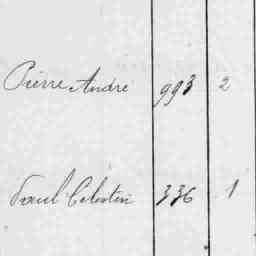 Pierre André 993 2
Paul Celestin 336 1